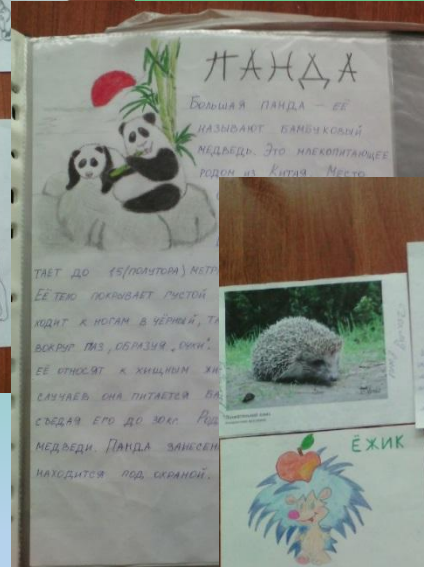 ПАНДА
БОЛЬШАЯ ПАНДА – ЕЁ
НАЗЫВАЮТ БАМБУКОВЫЙ
МЕДВЕДЬ. ЭТО МЛЕКОПИТАЮЩЕЕ
РОДОМ ИЗ КИТАЯ. МЕСТО
ТАЕТ ДО 1,5/ПОЛУТОРА) МЕТР
ЕЁ ТЕЛО ПОКРЫВАЕТ ГУСТОЙ
ХОДИТ К НОГАМ В ЧЁРНЫЙ, ТА
ВОКРУГ ГЛАЗ, ОБРАЗУЯ „ОЧКИ".
ЕЁ ОТНОСЯТ К ХИЩНЫМ ЖИ
СЛУЧАЕВ ОНА ПИТАЕТСЯ БА
СЪЕДАЯ ЕГО ДО 30 КГ.
МЕДВЕДИ. ПАНДА ЗАНЕСЕН
НАХОДИТСЯ ПОД ОХРАНОЙ.
ЁЖИК